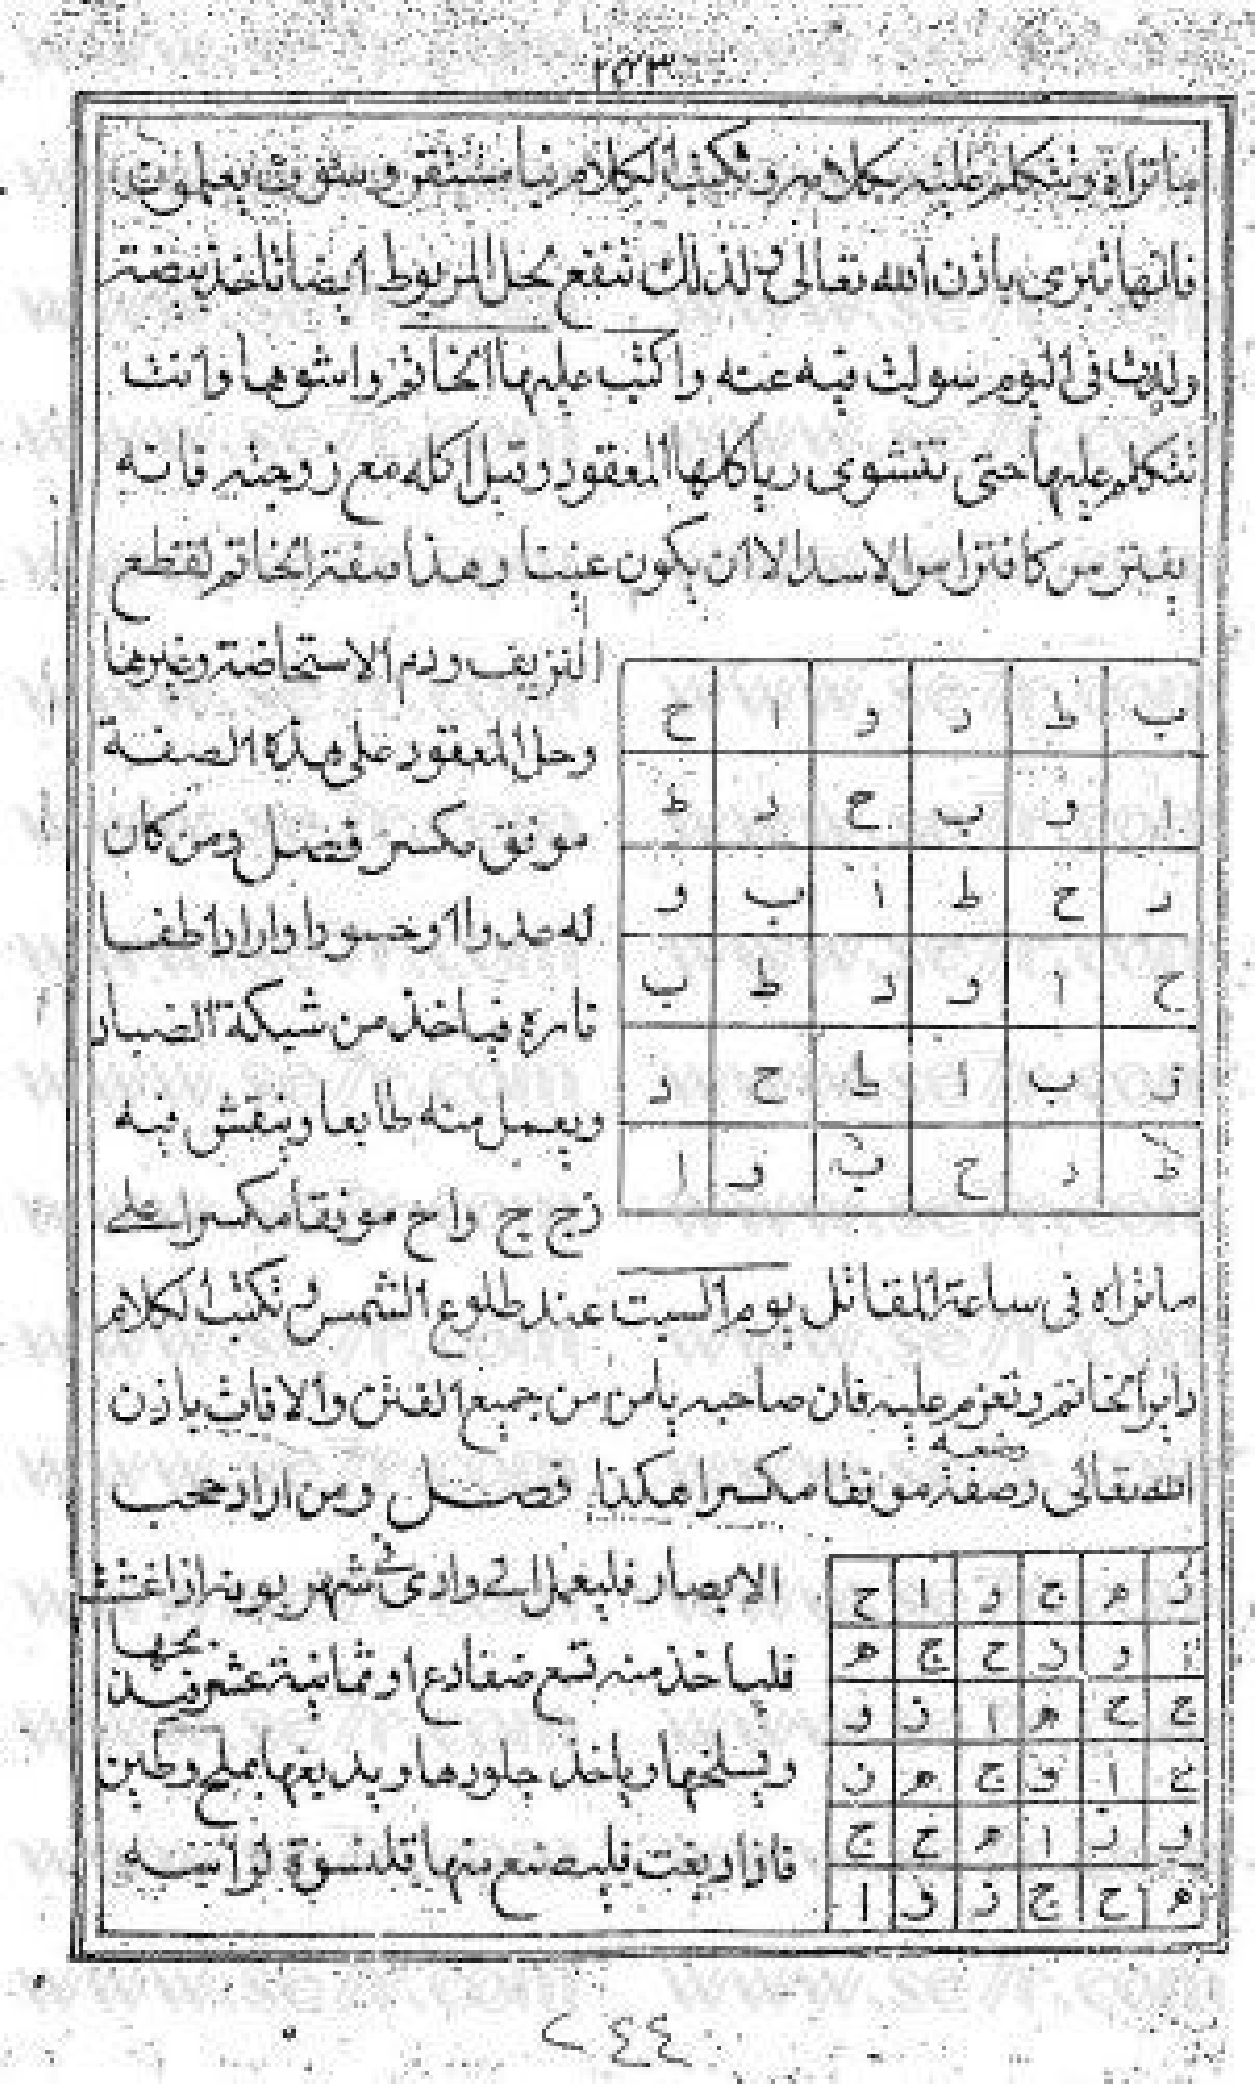 ٢٤٣
ما تراه وتتكلم عليه بكلامه وتكتب الكلام
فانها تبرى باذن الله تعالى وكذلك تنفع لحل المربوط ايضا تاخذ بيضة
ولدت فى اليوم سولت فيه عنه واكتب عليها الخاتم واشويها وانت
تتكلم عليها حتى تنشوى وياكلها المعقود وقبل اكله مع زوجته فانه
يفترس كافتراس الاسد الا ان يكون عنينا وهذا صفة الخاتم لقطع
النزيف ودم الاستحاضة وغيرها
وحل المعقود على هذه الصفة
موفق مكسر فصل ومن كان
له عدوا او حسودا واراد اطفا
ناره فياخذ من شبكة الصياد
ويعمل منه طابعا وينقش فيه
زج ج واح موفقا مكسرا على
ب ط د و ا ح
ا و ب ح د ط
د ح ط ا ب و
ح ا و د ط ب
و ب ا ط ح د
ط د ح ب و ا
ما تراه فى ساعة المقاتل يوم السبت عند طلوع الشمس وتكتب الكلام
داير الخاتم وتعزم عليه فان صاحبه يامن من جميع الفتن والافات باذن
الله تعالى وصفة وضعه موفقا مكسرا هكذا فصل ومن اراد حجب
الابصار فليعمل الى وادى فى شهر بونه اذا
فلياخذ منه تسع ضفادع او ثمانية عشر
ويسلخها وياخذ جلودها ويدبغها بملح وطين
فاذا دبغت فليصنع منها قلنسوة لراسه
ز ه ج و ا ح
ا و ز ح ج ه
ج ح ه ا ز و
ح ا و ج ه ز
و ز ا ه ح ج
ه ح ج ز و ا
٢٤٤